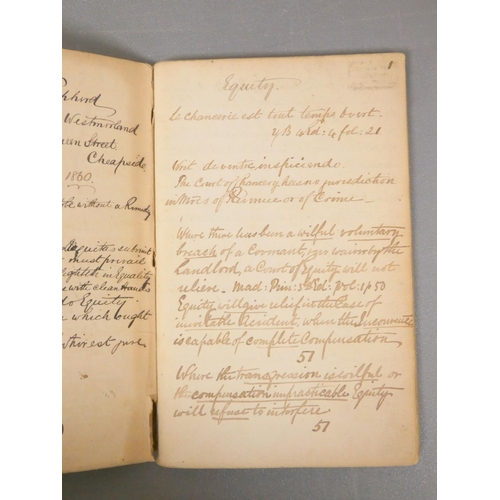 Westmorland
Street
Cheapside
1860
without a Remedy
must prevail
in Equality
with clean Hands
do Equity
which ought
1
Equity.
La chancerie est tout temps overt.
y B 4 Ed: 4 fol: 21
Writ de ventre inspiciendo.
The Court of Chancery has no jurisdiction
in Writs of or of Crime.
Where there has been a wilful voluntary
breach of a Covenant, by the
Landlord, a Court of Equity will not
relieve. Mad: Prin: 3d Ed: Vol: 1 p 50
Equity will give relief in the Case of
inevitable Accident, when the
is capable of complete Compensation
51
Where the transgression is wilful or
the compensation impracticable Equity
will refuse to interfere
51